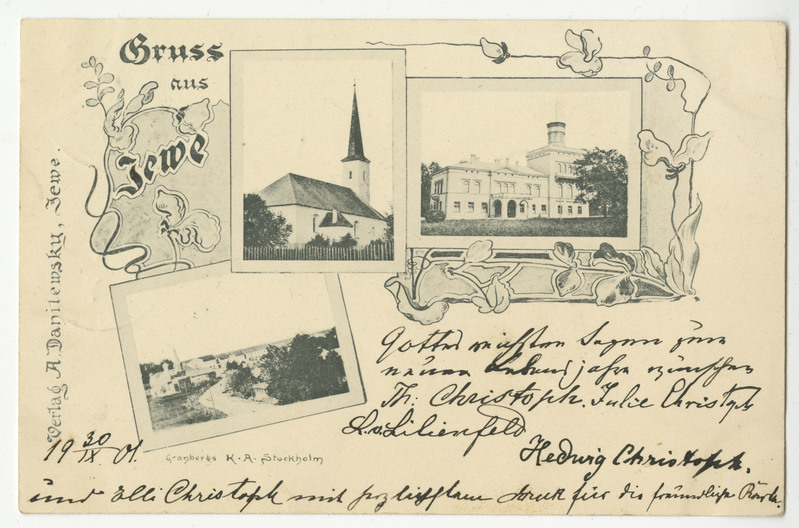 Gruss
aus
Jewe
Verlag A. Danilewsky, Jewe.
Granbergs K. A. Stockholm
Gottes reichsten Segen zum
neuen Lebensjahre wünschen
Th: Christoph. Julie Christoph
L. v. Lilienfeld
Hedwig Christoph.
19 30/IX 01.
und Elli Christoph mit herzlichstem Dank für die freundliche Karte.